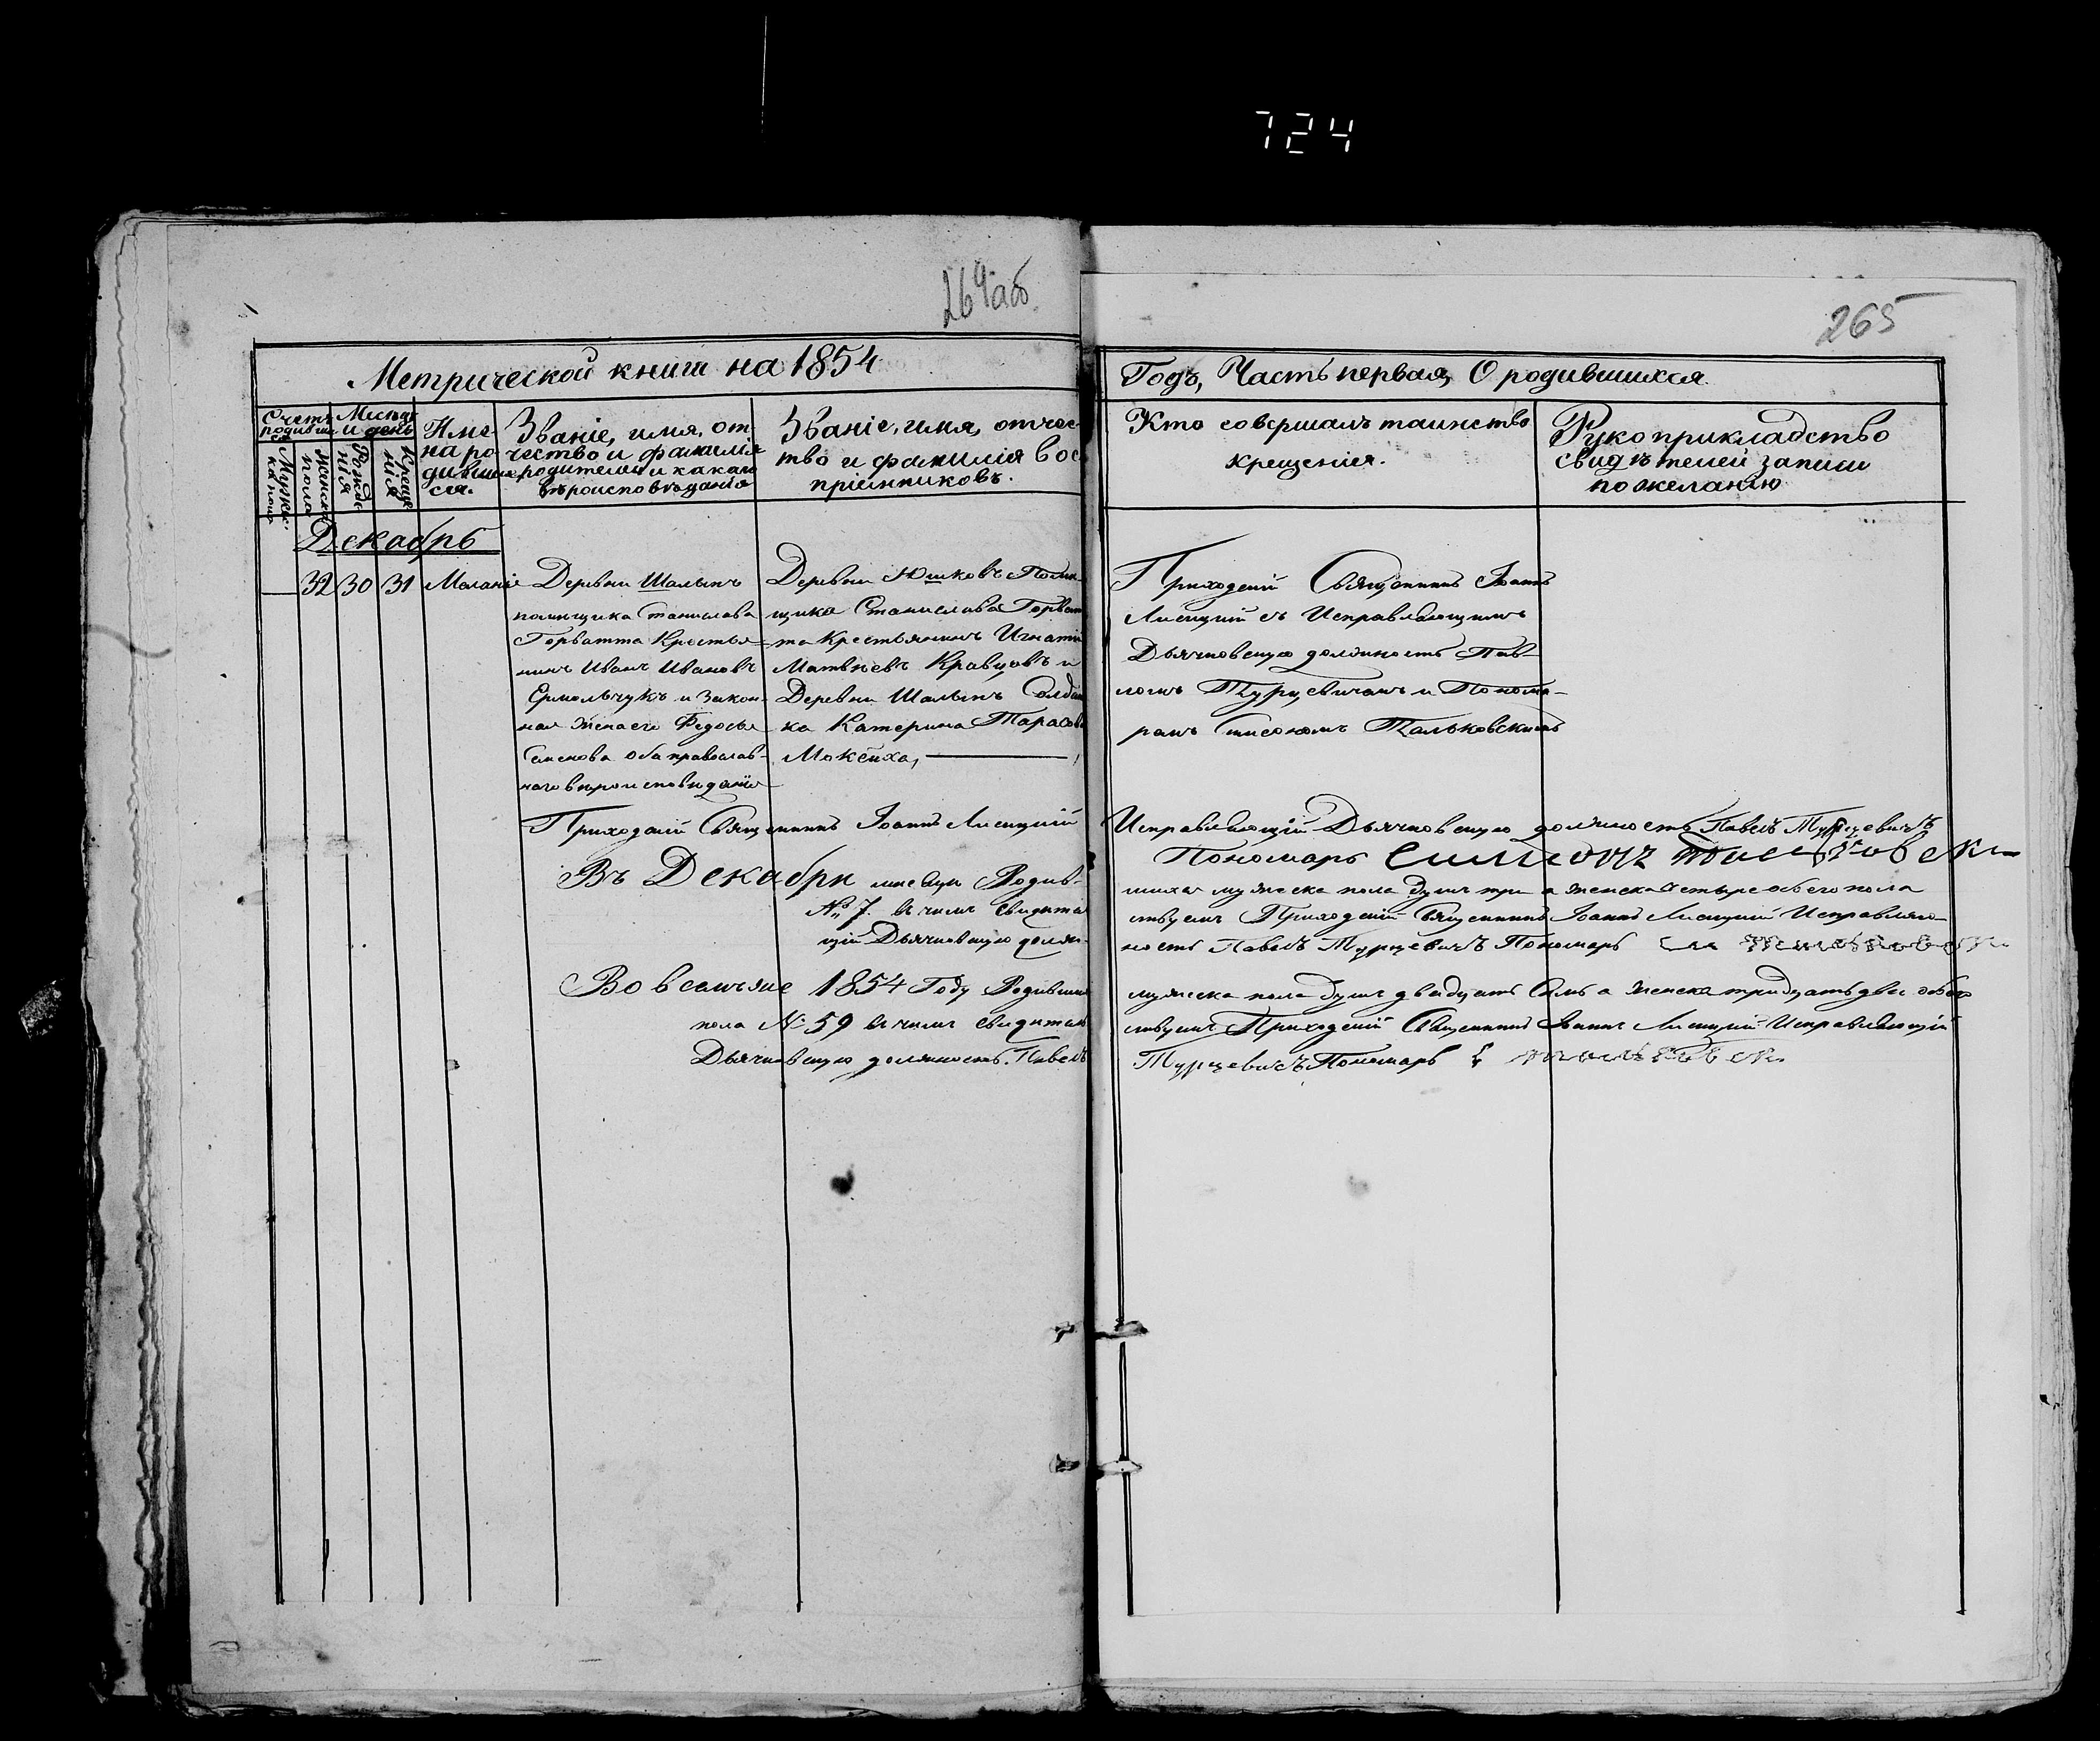 724
264 об
265
Метрической книги на 1854
Годъ, Часть первая, О родившихся.
Счетъ родивших ся
Мужес. ка пола
женска пола
Месяцъ и день
Рожде ния
Креще нія
Име- на ро- дивших ся.
Званіе, имя, от- чество и фамилія родителей и какаго вѣроисповѣданія
Званіе, имя, отчес- тво и фамилія вос пріемниковъ.
Кто совершалъ таинство крещенія.
Рукоприкладство свидѣтелей записи по желанію
Декабрь
32 30 31 Маланія
Деревни Шалынъ
помѣщика Станислава
Горватта Крестья-
нинъ Иванъ Ивановъ
Ермольчукъ и закон-
ная жена его Федосья
Семенова оба православ-
наго вероисповеданія
Деревни Юшковъ Поме-
щика Станислава Горват
та Крестьянинъ Игнатій
Матвѣевъ Кравцовъ и
Деревни Шалынъ Солдат
ка Катерина Тарасова
Мокеиха,
Приходскій Священникъ Іоаннъ
Лисицкій съ Исправляющимъ
Дьячковскую должность Пав-
ломъ Турцевичамъ и Понома-
ромъ Симеономъ Тальковскимъ
Приходскій Священникъ Іоаннъ Лисицкій
Исправляющій Дьячковскую должность Павелъ Турцевичъ
Пономарь Симеонъ
Въ Декабри месяце Родив-
шихся мужеска пола душъ три а женска четыре обоего пола
№ 7. въ чемъ свидетель
ствуемъ Приходскій Священникъ Іоаннъ Лисицкій Исправляю-
щій Дьячковскую долж-
ность Павелъ Турцевичъ Пономарь
Во всемъ же 1854 Году Родивших
мужеска пола душъ двадцать семь а женска тридцать две обоего
пола № 59 въ чемъ свидетель
ствуемъ Приходскій Священникъ Іоаннъ Лисицкій Исправляющій
Дьячковскую должность Павелъ
Турцевичъ Пономарь